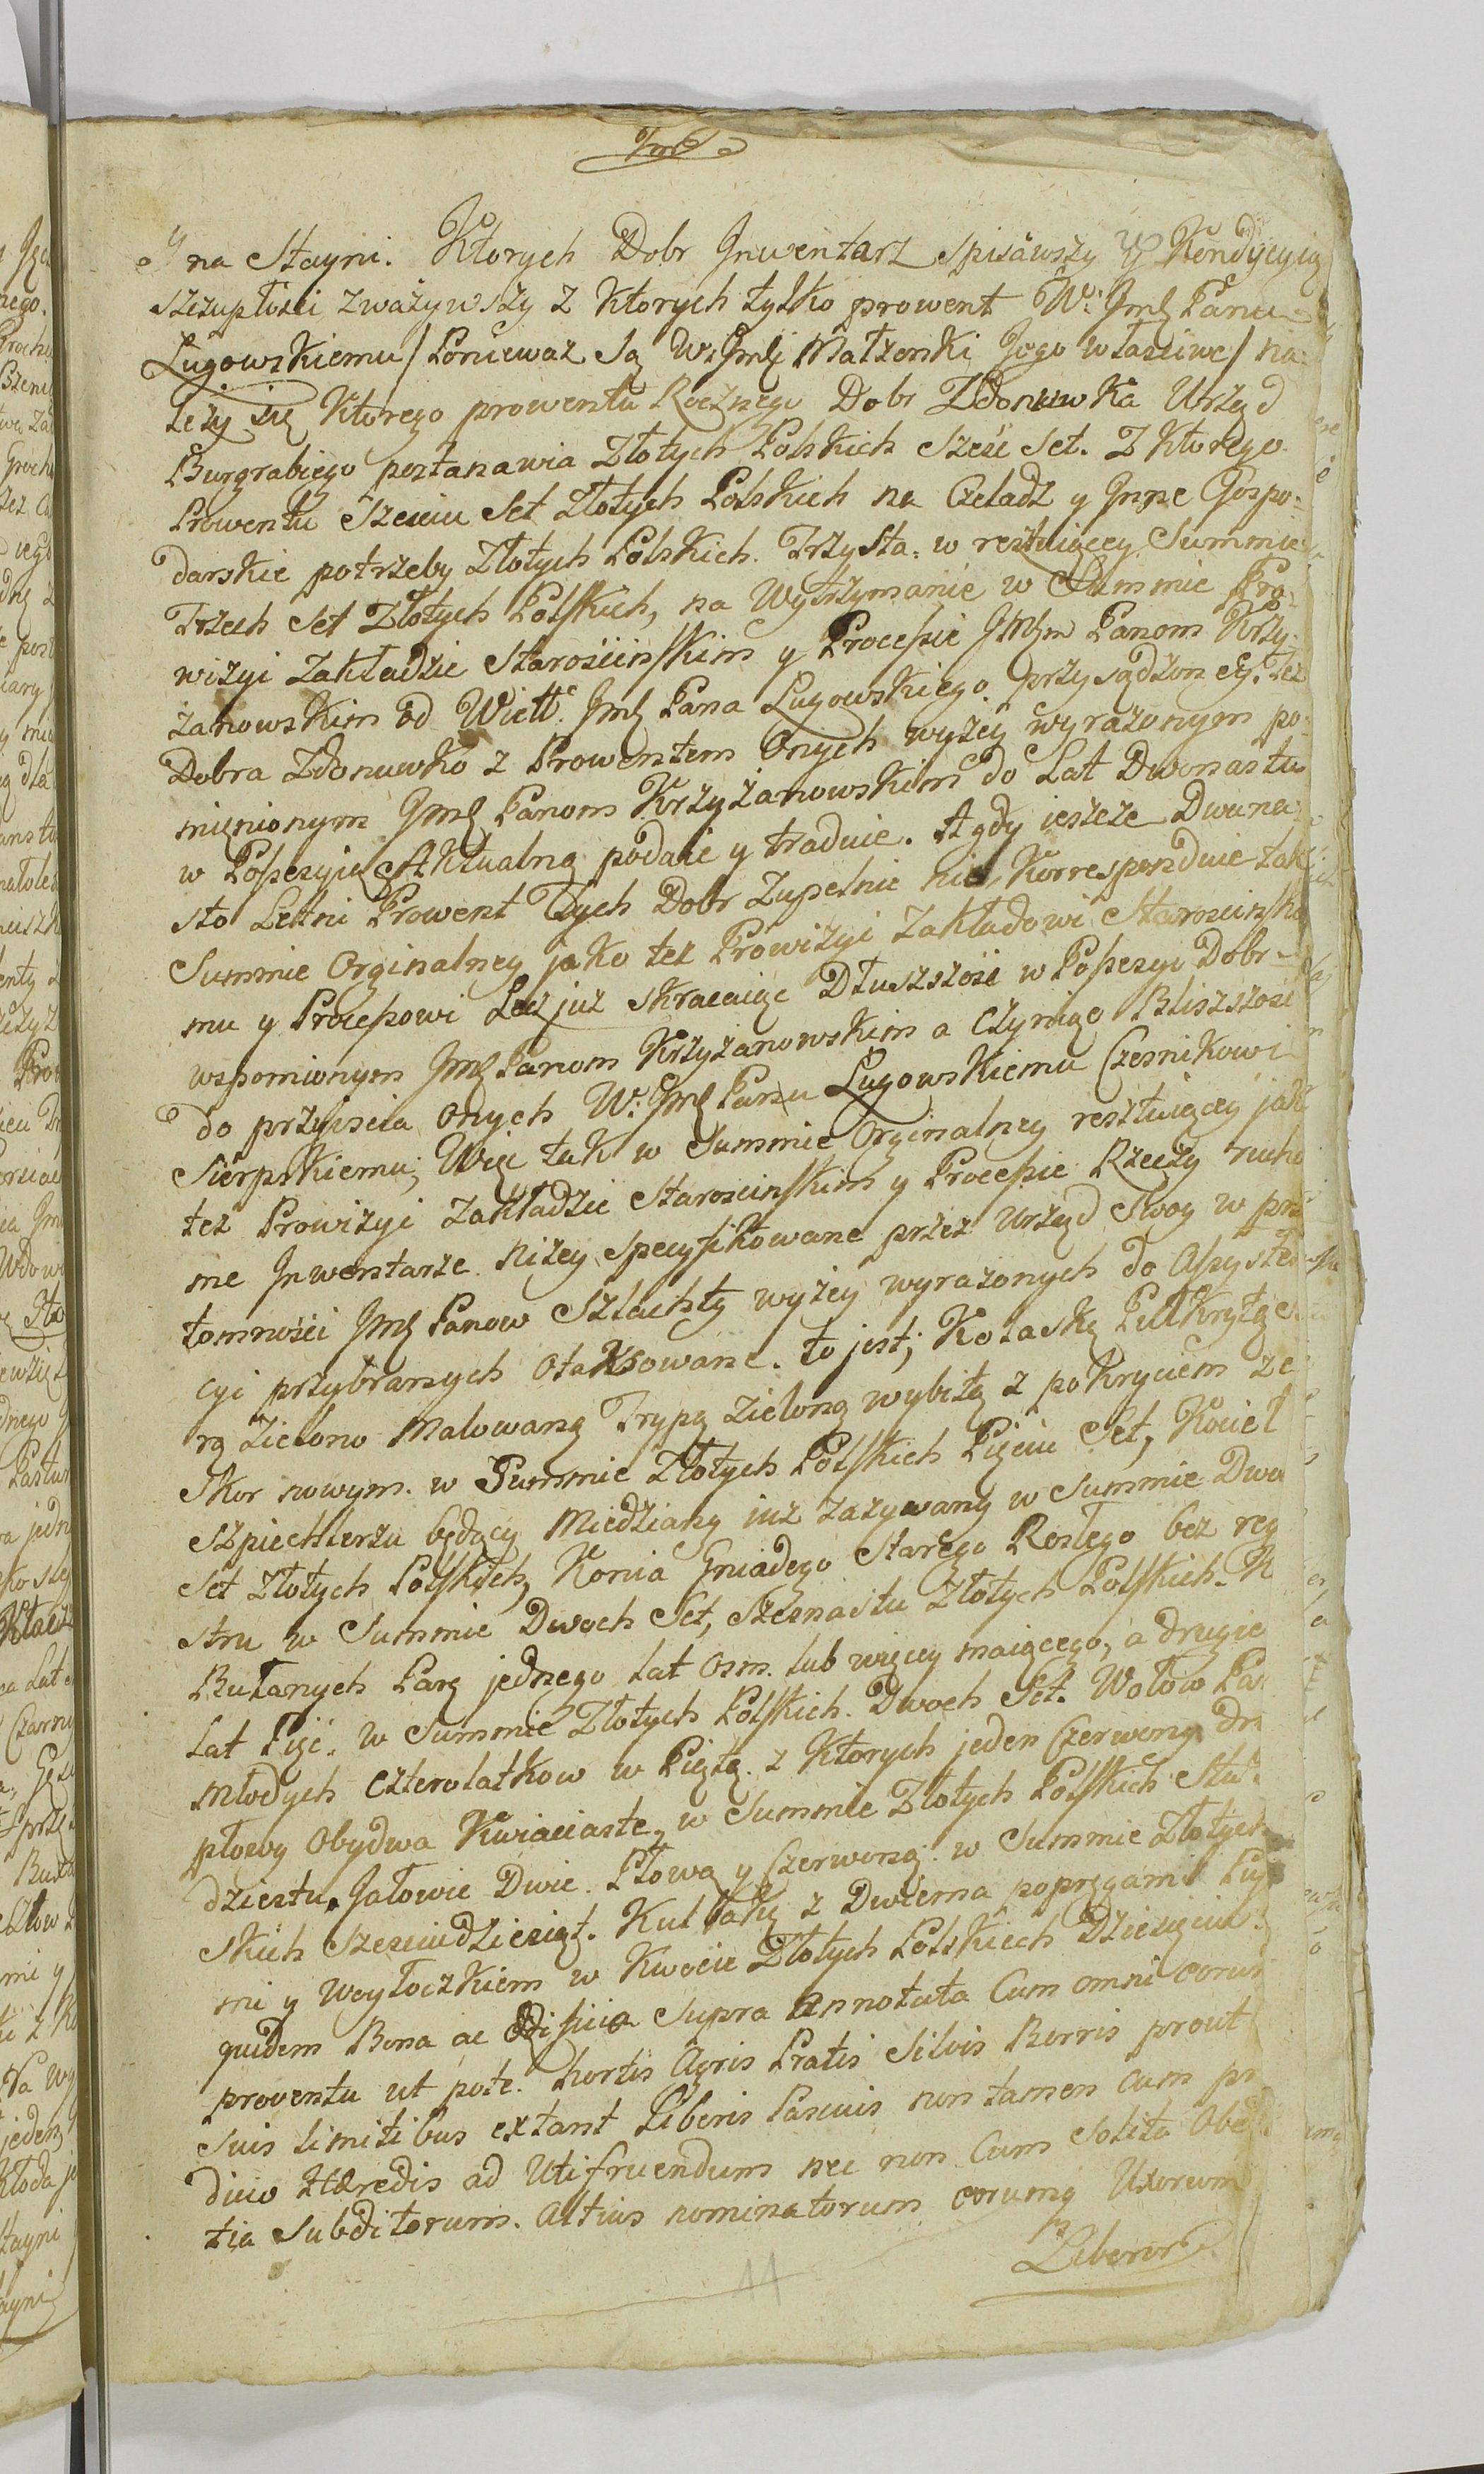 Imć
na Stayni. Ktorych Dobr Inwentarz spisawszy y Kondycyią
szczupłości zważywszy z Ktorych tylko prowent W: Imć Panu
Ługowskiemu / Ponieważ są W: Imći Małżonki Jego właściwe / na
leży się Ktorego prowentu Rocznego Dobr Zdonuwka Urząd
Burgrabiego postanawia Złotych Polskich sześć set. Z Ktorego
Prowentu Sześciu Set Złotych Polskich na Czeladź y Inne Gospo:
darskie potrzeby Złotych Polskich. Trzysta: w restuiącey Summie
Trzech Set Złotych Polskich, na Wytrzymanie w Summie Pro:
wizyi Zakładzie Starościńskim y Processie Imćm Panom Krzy:
żanowskim od Wiel: Imć Pana Ługowskiego przysądzoney. Też
Dobra Zdonuwko z Prowentem Onych wyżey wyrażonym po:
mienionym Imć Panom Krzyżanowskim do Lat Dwonastu
w Possesyią Aktualną podaie y traduie. A gdy ieszcze Dwuna
sto Letni Prowent Tych Dobr Zupełnie nie Korresponduie tak
Summie Orginalney jako też Prowizyi Zakładowi Starościnsko
mu y Processowi Lecz już skracaiąc Dłuższość w Possesyi Dobr
wspomionym Imć Panom Krzyżanowskim a Czyniąc Bliższość
do przyiścia Onych W: Imć Panu Ługowskiemu Czesnikowi
Sierpskiemu; Więc tak w Summie Orginalney restuiącey jak
też Prowizyi Zakładzie Starościnskim y Processie Rzeczy rucho
me Inwentarze niżey specyfikowane przez Urząd Swoy w prz
tomności Imć Panow Szlachty wyżey wyrażonych do Assysten
cyi przybranych Otaksowane. to jest; Kolaskę Pułkrytą
rą Zielono Malowaną Trypą Zieloną wybitą z pokryciem ze
Skor nowym. w Summie Złotych Polskich Pięciu Set, Kocieł
Szpiechlerzu będący Miedziany już zazywany w Summie Dwu
Set Złotych Polskich, Konia Gniadego Starego Rosłego bez rey
stru w Summie Dwoch Set, Szesnastu Złotych Polskich. K
Bułanych Parę jednego lat Osm. lub więcey maiącego, a drugie
Lat Pięć. w Summie Złotych Polskich. Dwoch Set. Wołow Pa
młodych czterolatkow w Piętą. z Ktorych jeden Czerwony dru
płowy Obydwa Kwiaciaste, w Summie Złotych Polskich Stu
dziestu. Jałowic Dwie. Płową y Czerwoną. w Summie Złotych
skich Sześciudziesiąt. Kulbakę z Dwiema popręgami Puş
mi y Woyłoczkiem w Kwocie Złotych Polskich Dziesięciu
quidem Bona ac Edificia Supra Annotata Cum omni eorum
proventu ut pote. hortis Agris Pratis Silvis Borris prout
suis limitibus extant Liberis Pascuis non tamen cum pr
dicio Hæredis ad Utifruendum nec non Cum Solita Obed
tia Subditorum. Altius nominatorum eorumq Uxorum
Liberor
11